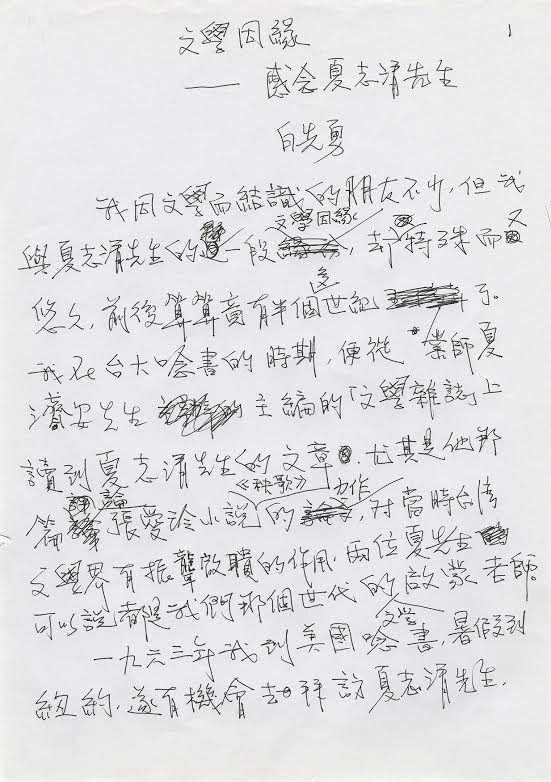 1
文學因緣
—— 感念夏志清先生
白先勇
我因文學而結識的朋友不少,但我
與夏志清先生的這一段文學因緣,却特殊而又
悠久,前後算算竟有半個多世紀了。
我在台大唸書的時期,便從業師夏
濟安先生主編的「文學雜誌」上
讀到夏志清先生的文章。尤其是他那
篇評論張愛玲小說《秧歌》的力作,對當時台灣
文學界有振聾啟聵的作用,兩位夏先生
可以說都是我們那個世代的啟蒙老師。
一九六三年我到美國唸文學書,暑假到
紐約,遂有機會去拜訪夏志清先生,